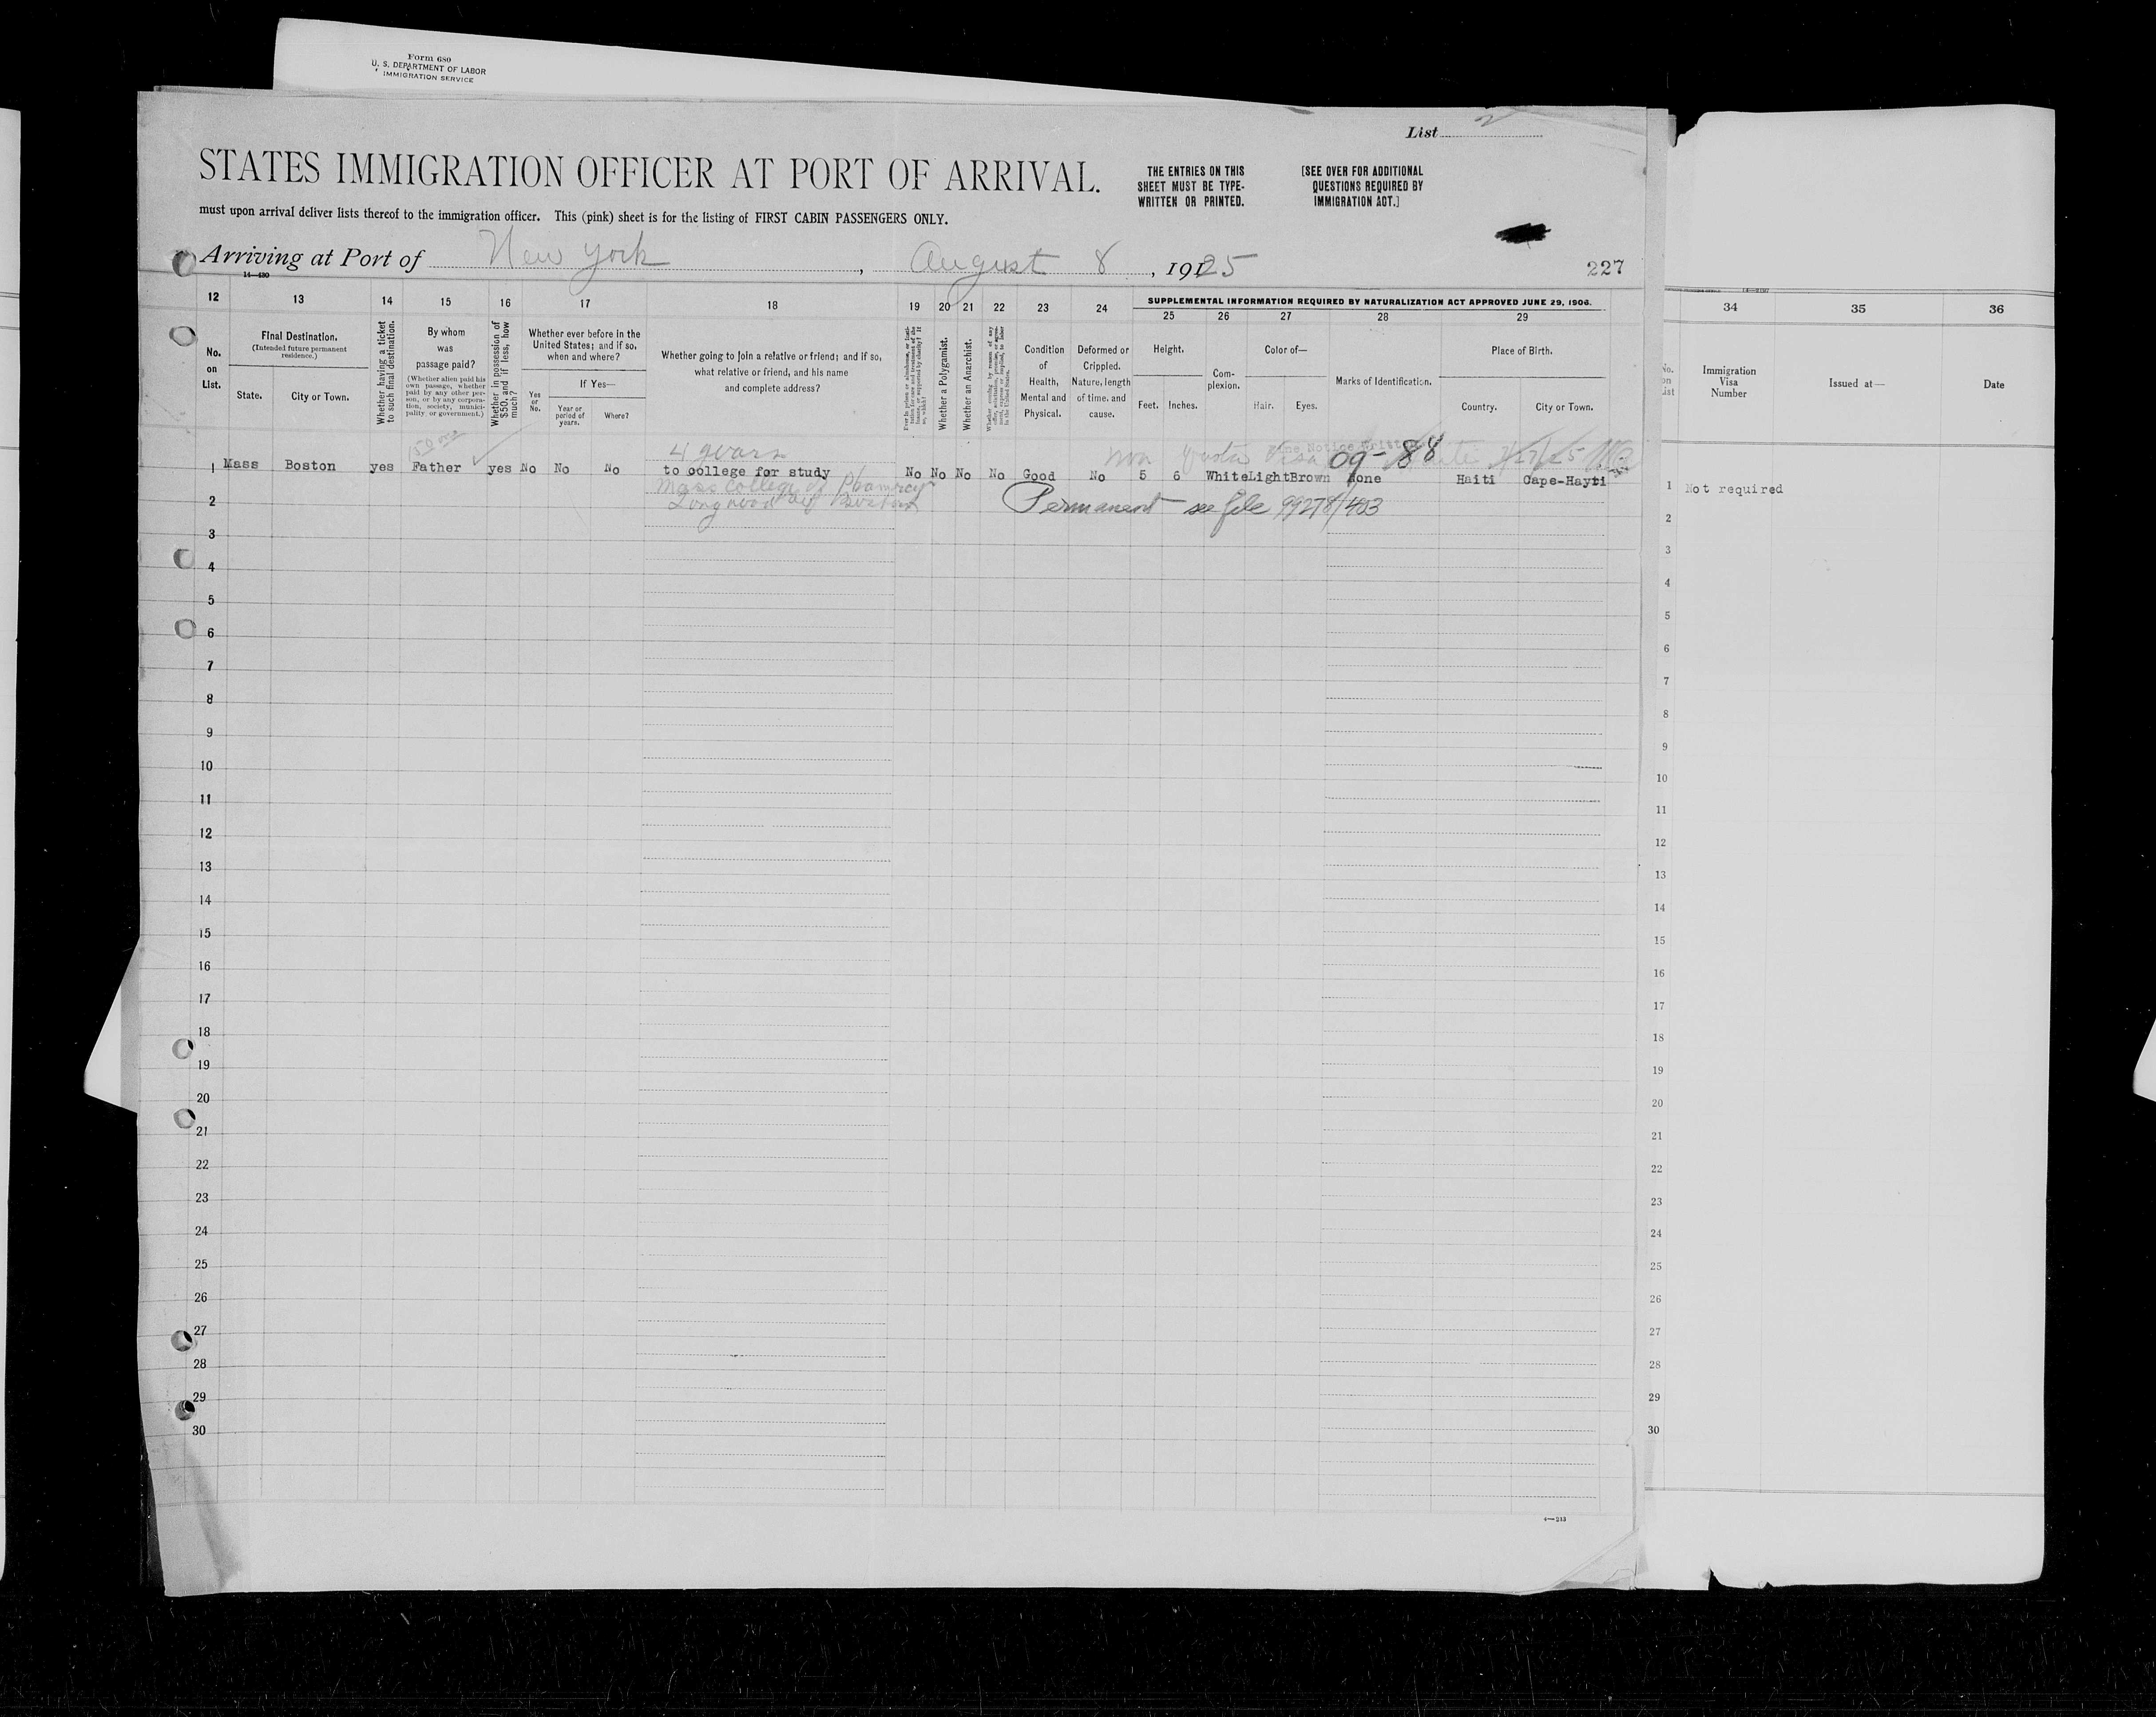 Form 680
U. S. DEPARTMENT OF LABOR
IMMIGRATION SERVICE
List 2
STATES IMMIGRATION OFFICER AT PORT OF ARRIVAL.
THE ENTRIES ON THIS
SHEET MUST BE TYPE-
WRITTEN OR PRINTED.
[SEE OVER FOR ADDITIONAL
QUESTIONS REQUIRED BY
IMMIGRATION ACT.]
must upon arrival deliver lists thereof to the immigration officer. This (pink) sheet is for the listing of FIRST CABIN PASSENGERS ONLY.
Arriving at Port of New York, August 8, 1925
227
14—480
12 13 14 15 16 17 18 19 20 21 22 23 24
SUPPLEMENTAL INFORMATION REQUIRED BY NATURALIZATION ACT APPROVED JUNE 29, 1906.
25 26 27 28 29
34 35 36
No.
on
List.
Final Destination.
(Intended future permanent
residence.)
State.
City or Town.
Whether having a ticket
to such final destination.
By whom
was
passage paid?
(Whether alien paid his
own passage, whether
paid by any other per-
son, or by any corpora-
tion, society, munici-
pality or government.)
Whether in possession of
$50, and if less, how
much?
Whether ever before in the
United States; and if so,
when and where?
If Yes—
Yes
or
No.
Year or
period of
years.
Where?
Whether going to join a relative or friend; and if so,
what relative or friend, and his name
and complete address?
Whether a Polygamist.
Whether an Anarchist.
Condition
of
Health,
Mental and
Physical.
Deformed or
Crippled.
Nature, length
of time, and
cause.
Height.
Feet. Inches.
Com-
plexion.
Color of—
Hair. Eyes.
Marks of Identification.
Place of Birth.
Country. City or Town.
No.
on
List
Immigration
Visa
Number
Issued at—
Date
4 years
Non Quota Visa 09-88
1 Mass Boston yes Father yes No No No to college for study No No No No Good No 5 6 White Light Brown None Haiti Cape-Hayti
1 Not required
Mass College of Pharmacy
Longwood Ave Boston
Permanent see file 99278/403
2
3
4
5
6
7
8
9
10
11
12
13
14
15
16
17
18
19
20
21
22
23
24
25
26
27
28
29
30
2
3
4
5
6
7
8
9
10
11
12
13
14
15
16
17
18
19
20
21
22
23
24
25
26
27
28
29
30
4—213